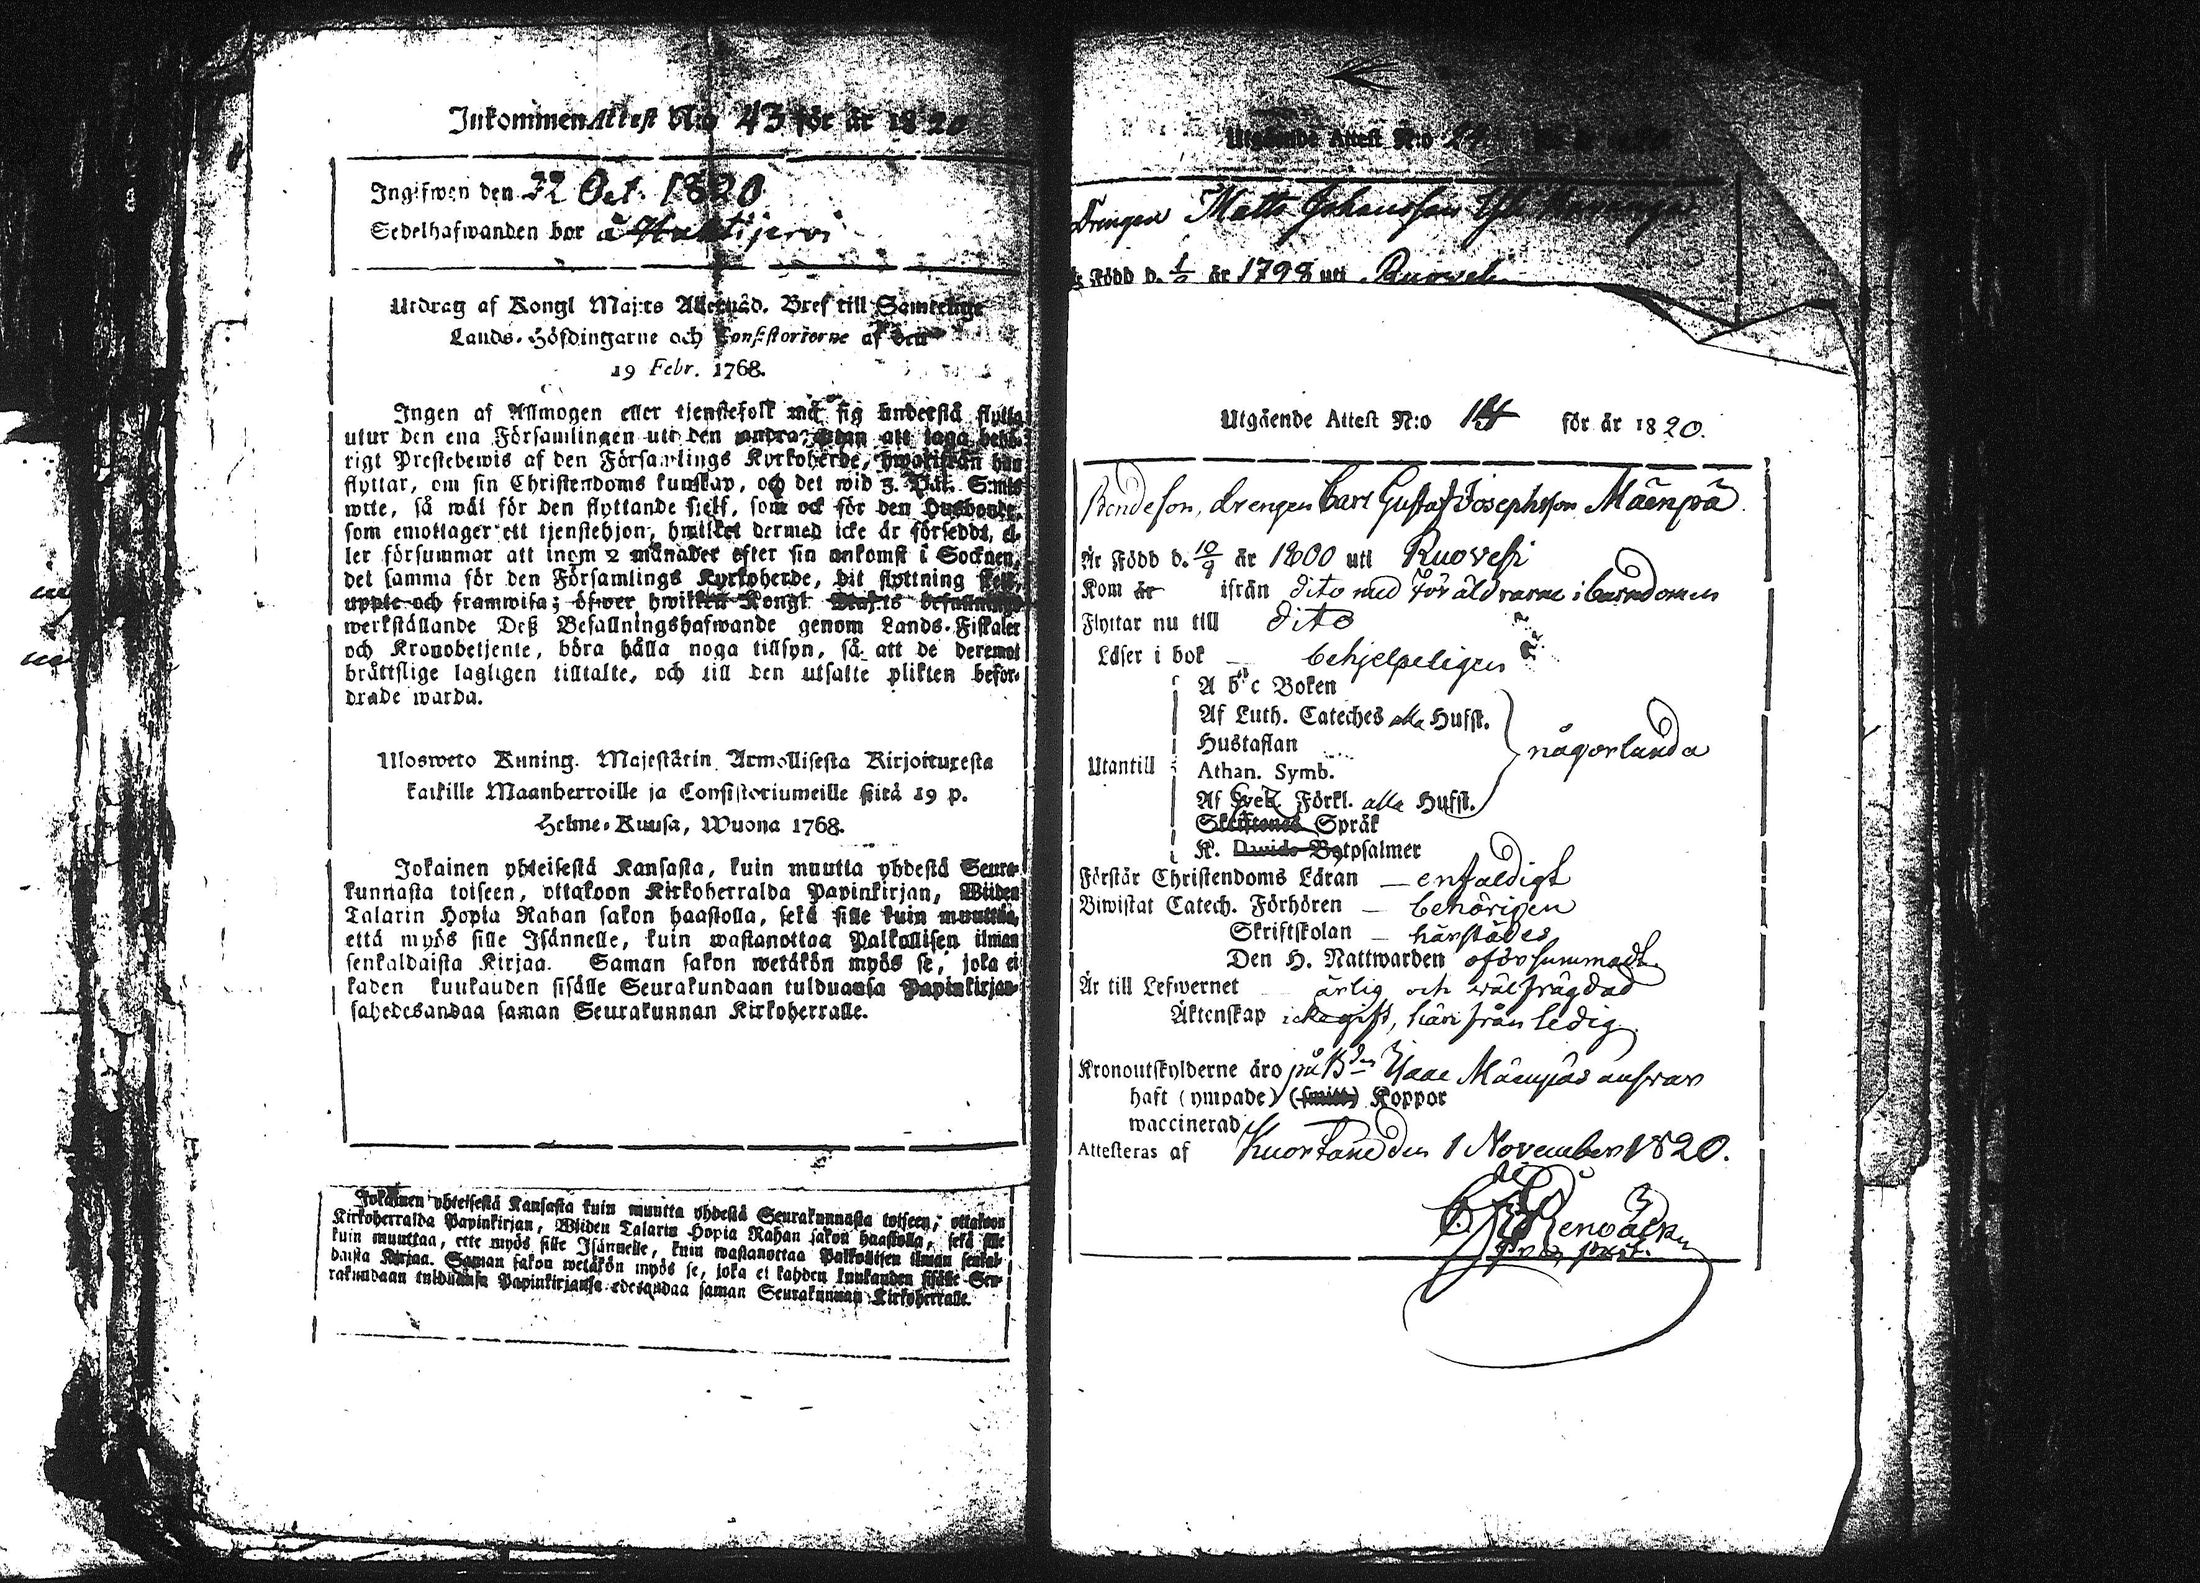 Inkommen Attest N:o 43 för år 1820
Ingifwen den 22 Oct. 1820
Sedelhafwanden bor å
Utdrag af Kongl Maj:ts Allernåd. Bref till Samtelige
Lands-Höfdingarne och Consistorierne af den
19 Febr. 1768.
Ingen af Allmogen eller tjenstefolk må sig understå flytta
utur den ena Församlingen uti den andra, utan att taga behö-
rigt Prestebewis af den Församlings Kyrkoherde, hwarifrån han
flyttar, om sin Christendoms kunskap, och det wid 3. Dal. S:mts
wite, så wäl för den flyttande sjelf, som ock för den Husbonde,
som emottager ett tjenstehjon, hwilket dermed icke är försedt, el-
ler försummar att inom 2 månader efter sin ankomst i Socknen,
det samma för den Församlings Kyrkoherde, dit flyttning sker,
uppte och framwisa; öfwer hwilken Kongl Maj:ts befallnings
werkställande Deß Befallningshafwande genom Lands-Fiskaler
och Kronobetjente, böra hålla noga tillsyn, så att de deremot
bråttslige lagligen tilltalte, och till den utsatte plikten beför-
drade warda.
Ulosweto Kuning. Majestätin Armollisesta Kirjoituxesta
kaikille Maanherroille ja Consistoriumeille siitä 19 p.
Helme-Kuusa, Wuona 1768.
Jokainen yhteisestä Kansasta, kuin muutta yhdestä Seura-
kunnasta toiseen, ottakoon Kirkoherralda Papinkirjan, Wiiden
Talarin Hopia Rahan sakon haastolla, sekä sille kuin muuttaa,
että myös sille Isännelle, kuin wastanottaa Palkollisen ilman
senkaldaista Kirjaa. Saman sakon wetäkön myös se, joka ei
kaden kuukauden sisälle Seurakundaan tulduansa Papinkirjan-
sahedesandaa saman Seurakunnan Kirkoherralle.
Jokainen yhteisestä Kansasta kuin muutta yhdestä Seurakunnasta toiseen, ottakoon
Kirkoherralda Papinkirjan, Wiiden Talarin Hopia Rahan sakon haastolla, sekä sille
kuin muuttaa, ette myös sille Isännelle, kuin wastanottaa Palkollisen ilman senkal-
daista Kirjaa. Saman sakon wetäkön myös se, joka ei kahden kuukauden sisälle Seu-
rakundaan tulduansa Papinkirjansa edesandaa saman Seurakunnan Kirkoherralle.
Utgående Attest N:o
Drengen Matts Johansson
Född d. år 1798 uti Ruovesi
Utgående Attest N:o 14 för år 1820.
Bondeson, drengen Carl Gustaf Josephsson Mäenpä
Är Född d. 10/9 år 1800 uti Ruovesi
Kom år ifrån dito med Föräldrarne i barndomen
Flyttar nu till dito
Läser i bok – behjelpeligen
A b c Boken
Af Luth. Cateches alla Hufst.
Hustaflan
Utantill
Athan. Symb.
någorlunda
Af Sveb. Förkl. alla Hufst.
Skriftenes Språk
K. Davids Botpsalmer
Förstår Christendoms Läran – enfaldigt
Biwistat Catech. Förhören – behörigen
Skriftskolan – härstädes
Den H. Nattwarden oförsummadt
Är till Lefwernet ärlig och wälfrägdad
Äktenskap icke gift, härifrån ledig
Kronoutskylderne äro på B:den Isaac Mäenpäs ansvar
haft (ympade) (smitt) Koppor
waccinerad
Attesteras af Kuortane den 1 November 1820.